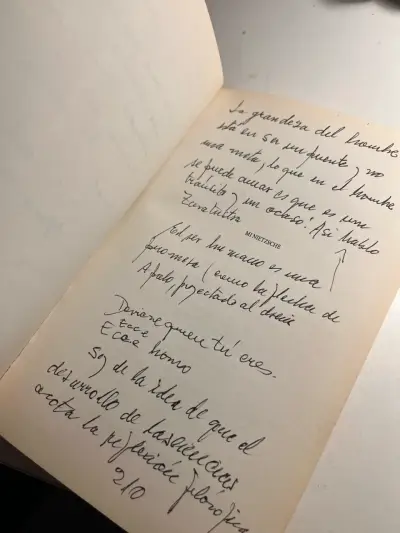 La grandeza del hombre
está en ser un puente y no
una meta; lo que en el hombre
se puede amar es que es un
tránsito y un ocaso! Así habló
Zaratustra
MI NIETZSCHE
El ser humano es una
promesa (como la flecha de
Apolo, proyectado al
Deviene quien tú eres.
Ecce
Ecce homo
Soy de la idea de que el
desarrollo de las ciencias
acota la reflexión filosófica
210